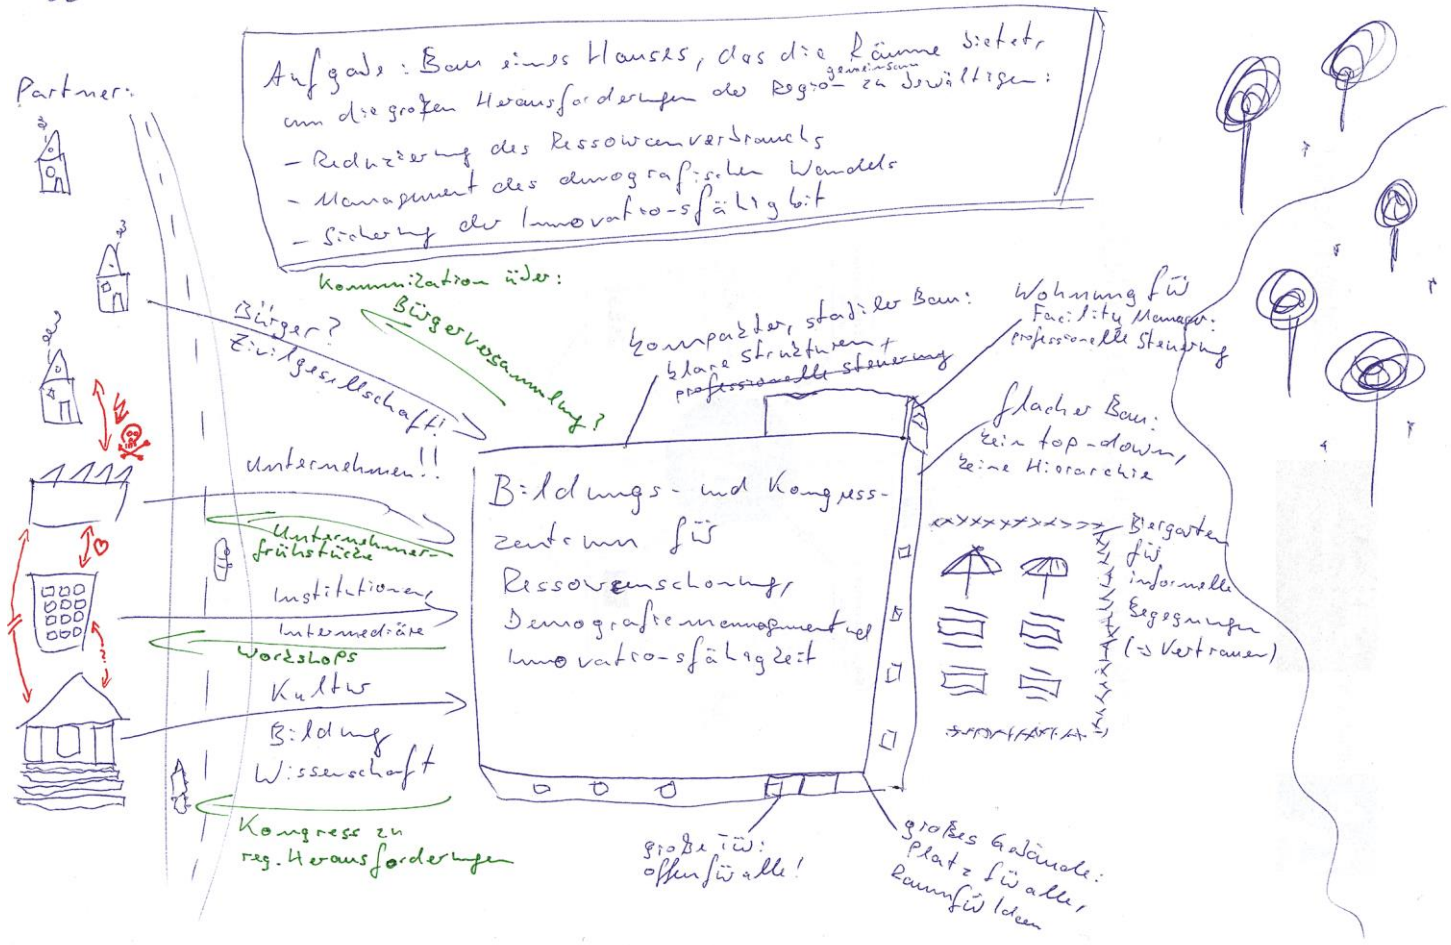 Partner:
Aufgabe: Bau eines Hauses, das die Räume bietet,
um die großen Herausforderungen der Region gemeinsam zu bewältigen:
- Reduzierung des Ressourcenverbrauchs
- Management des demografischen Wandels
- Sicherung der Innovationsfähigkeit
Kommunikation über:
Bürgerversammlung?
Bürger?
Zivilgesellschaft!
Unternehmen!!
Unternehmer-
frühstücke
Institutionen,
Intermediäre
Workshops
Kultur
Bildung
Wissenschaft
Kongress zu
reg. Herausforderungen
kompakter, stabiler Bau:
klare Strukturen +
professionelle Steuerung
Wohnung für
Facility Manager:
professionelle Steuerung
flacher Bau:
kein top-down,
keine Hierarchie
Bildungs- und Kongress-
zentrum für
Ressourcenschonung,
Demografiemanagement und
Innovationsfähigkeit
Biergarten
für
informelle
Begegnungen
(→ Vertrauen)
große Tür:
offen für alle!
großes Gebäude:
Platz für alle,
Raum für Ideen